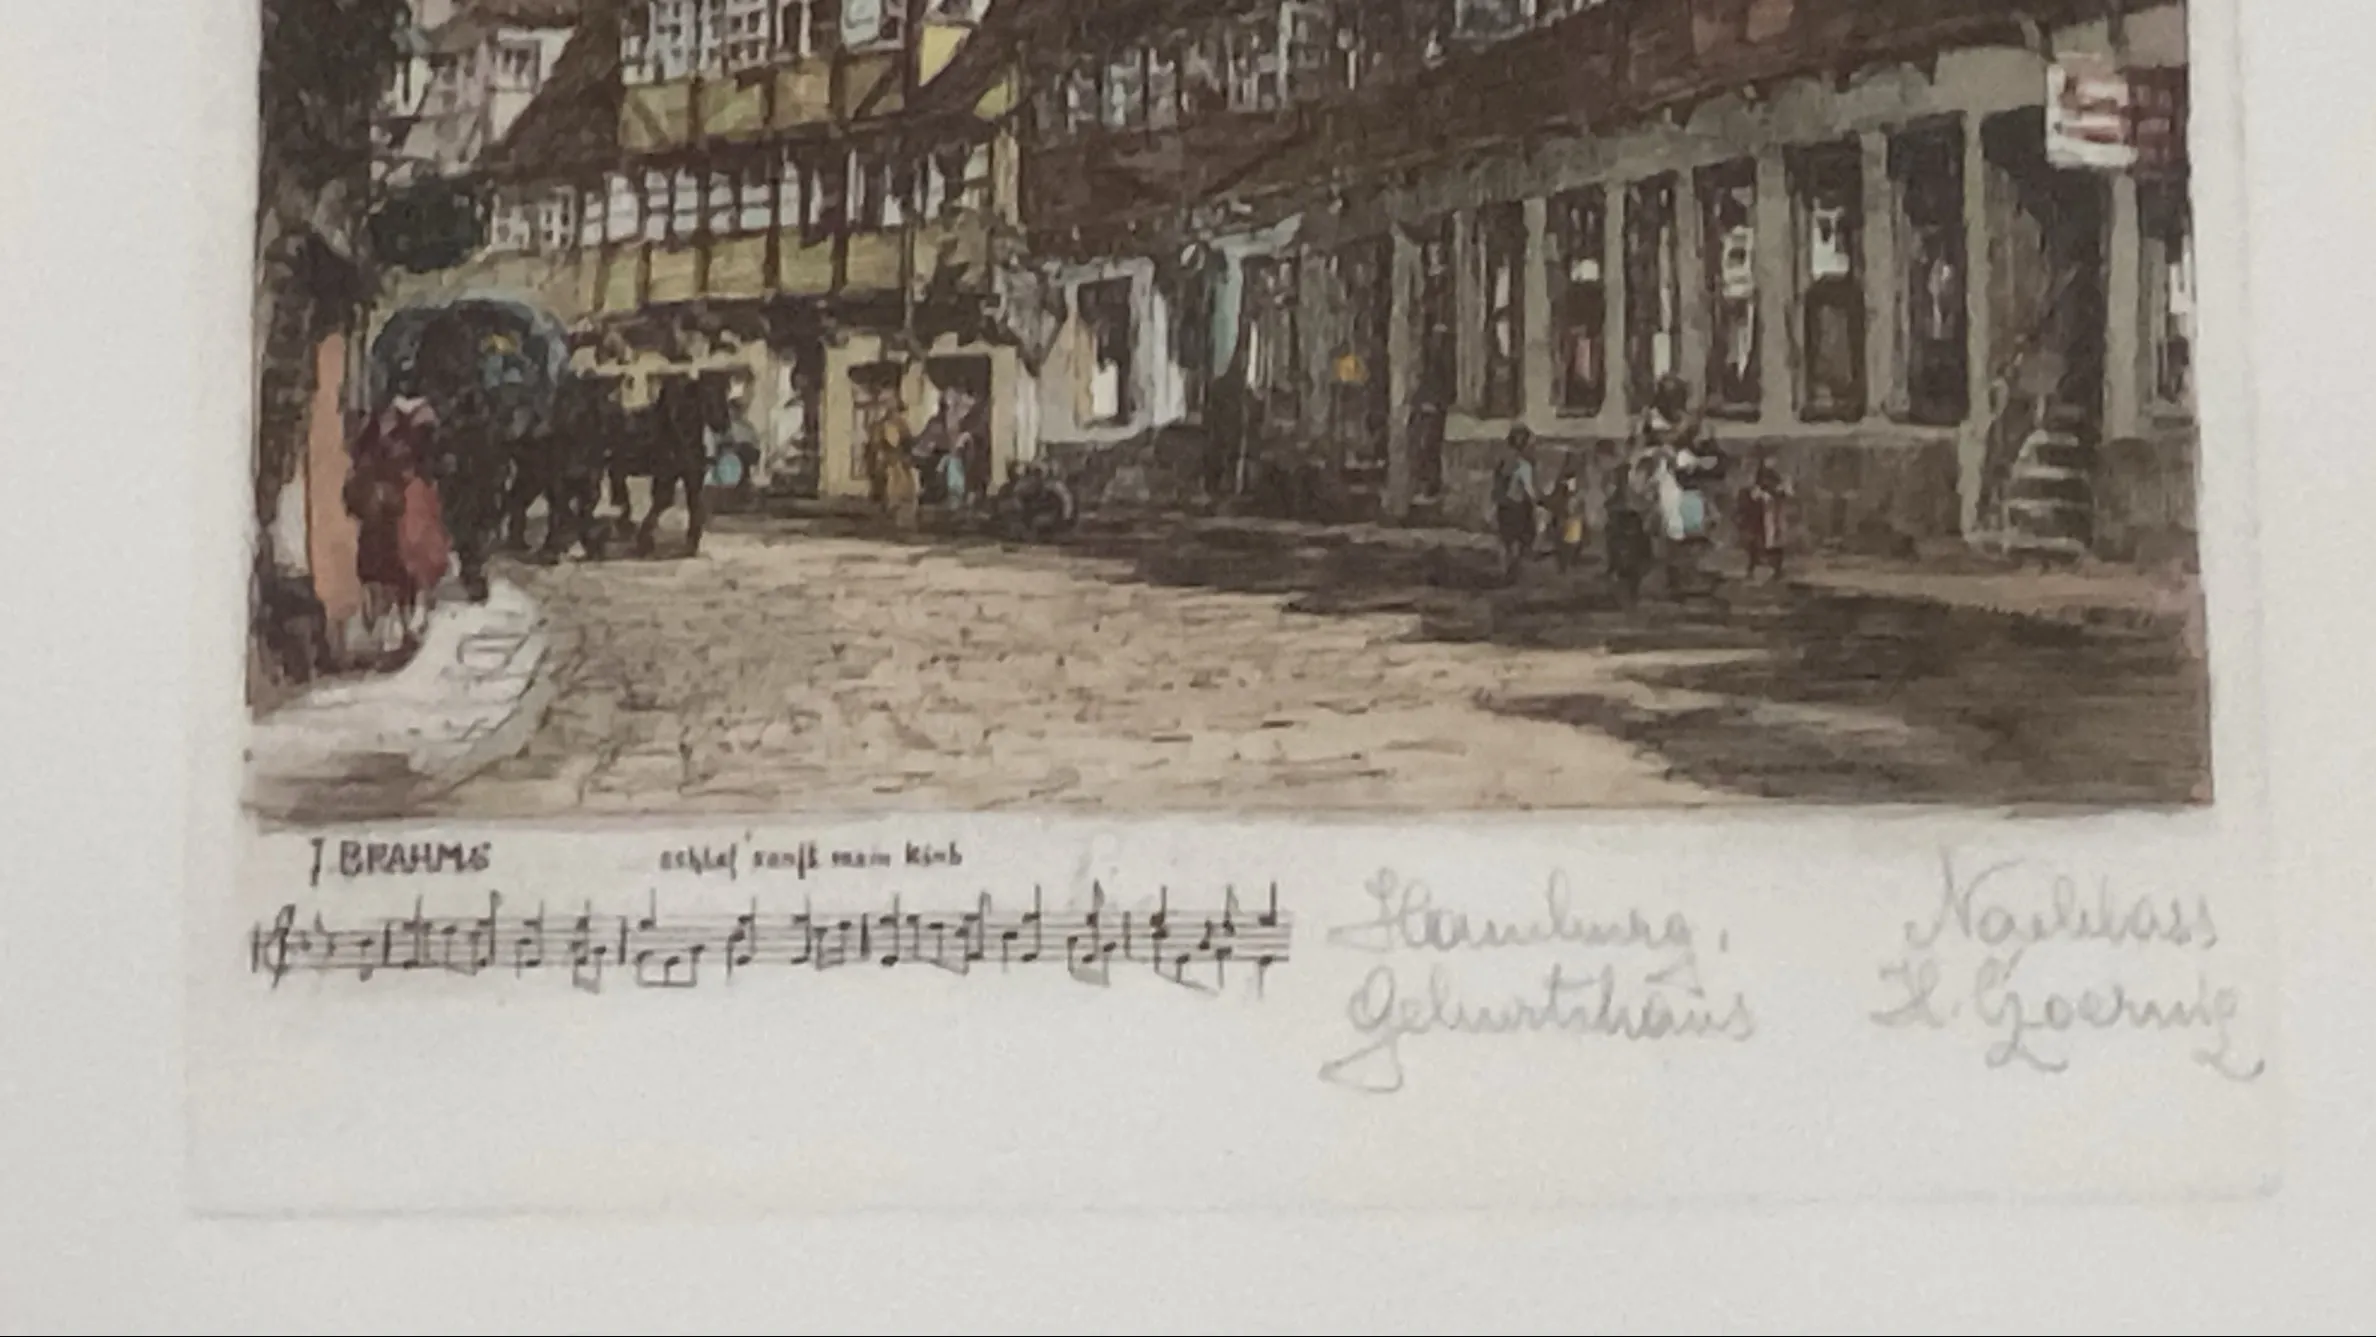 J. BRAHMS
schlaf' sanft mein Kind
Hamburg,
Geburtshaus
Nachlass
H. Goernig